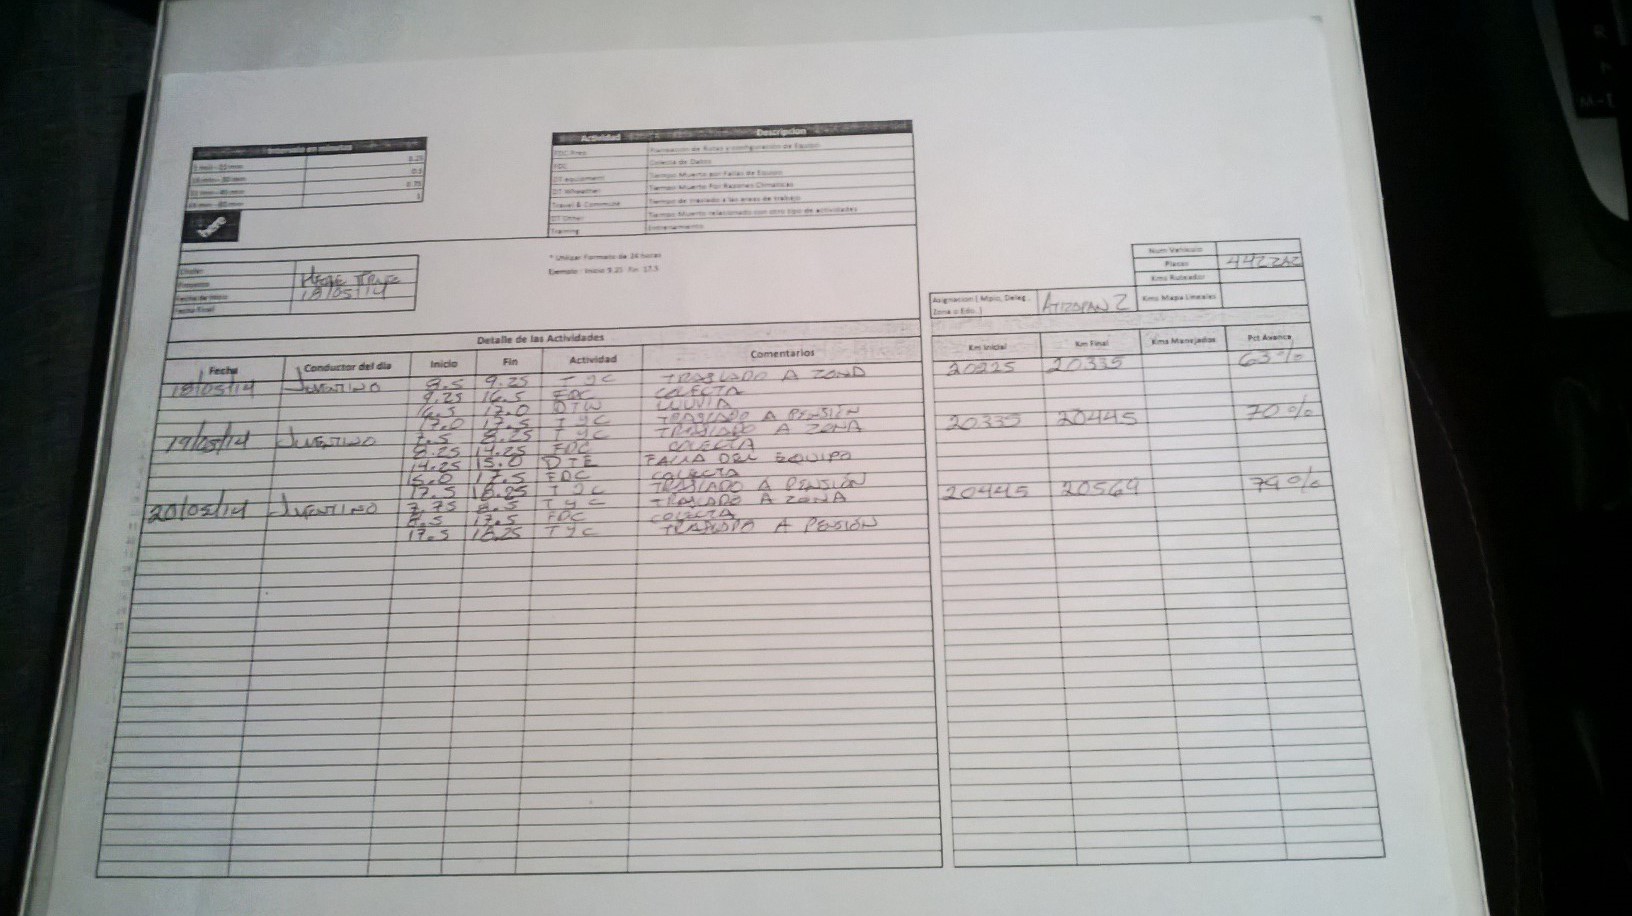 Intervalo en minutos
0.25
0.5
0.75
1
Actividad Descripcion
FDC Prep Planeacion de Rutas y configuración de Equipo
FDC Colecta de Datos
DT equipment Tiempo Muerto por Fallas de Equipo
DT Wheather Tiempo Muerto Por Razones Climaticas
Travel & Commute Tiempo de traslado a las areas de trabajo
DT Other Tiempo Muerto relacionado con otro tipo de actividades
Training Entrenamiento
here
* Utilizar Formato de 24 horas
Ejemplo : Inicio 9.25 Fin 17.5
Chofer
Proyecto
Fecha de Inicio 18/05/14
Fecha Final
Num Vehiculo
Placas 442ZAZ
Kms Ruteador
Kms Mapa Lineales
Asignacion ( Mpio, Deleg, Zona o Edo. ) ATIZAPAN Z
Detalle de las Actividades
Fecha Conductor del dia Inicio Fin Actividad Comentarios Km Inicial Km Final Kms Manejados Pct Avance
18/05/14 JUVENTINO 8.5 9.25 T y C TRASLADO A ZONA 20225 20335 63%
9.25 16.5 FDC COLECTA
16.5 17.0 DTW LLUVIA
17.0 17.5 T y C TRASLADO A PENSIÓN
19/05/14 JUVENTINO 7.5 8.25 T y C TRASLADO A ZONA 20335 20445 70%
8.25 14.25 FDC COLECTA
14.25 15.0 DTE FALLA DEL EQUIPO
15.0 17.5 FDC COLECTA
17.5 18.25 T y C TRASLADO A PENSIÓN
20/05/14 JUVENTINO 7.75 8.5 T y C TRASLADO A ZONA 20445 20569 79%
8.5 17.5 FDC COLECTA
17.5 18.25 T y C TRASLADO A PENSIÓN